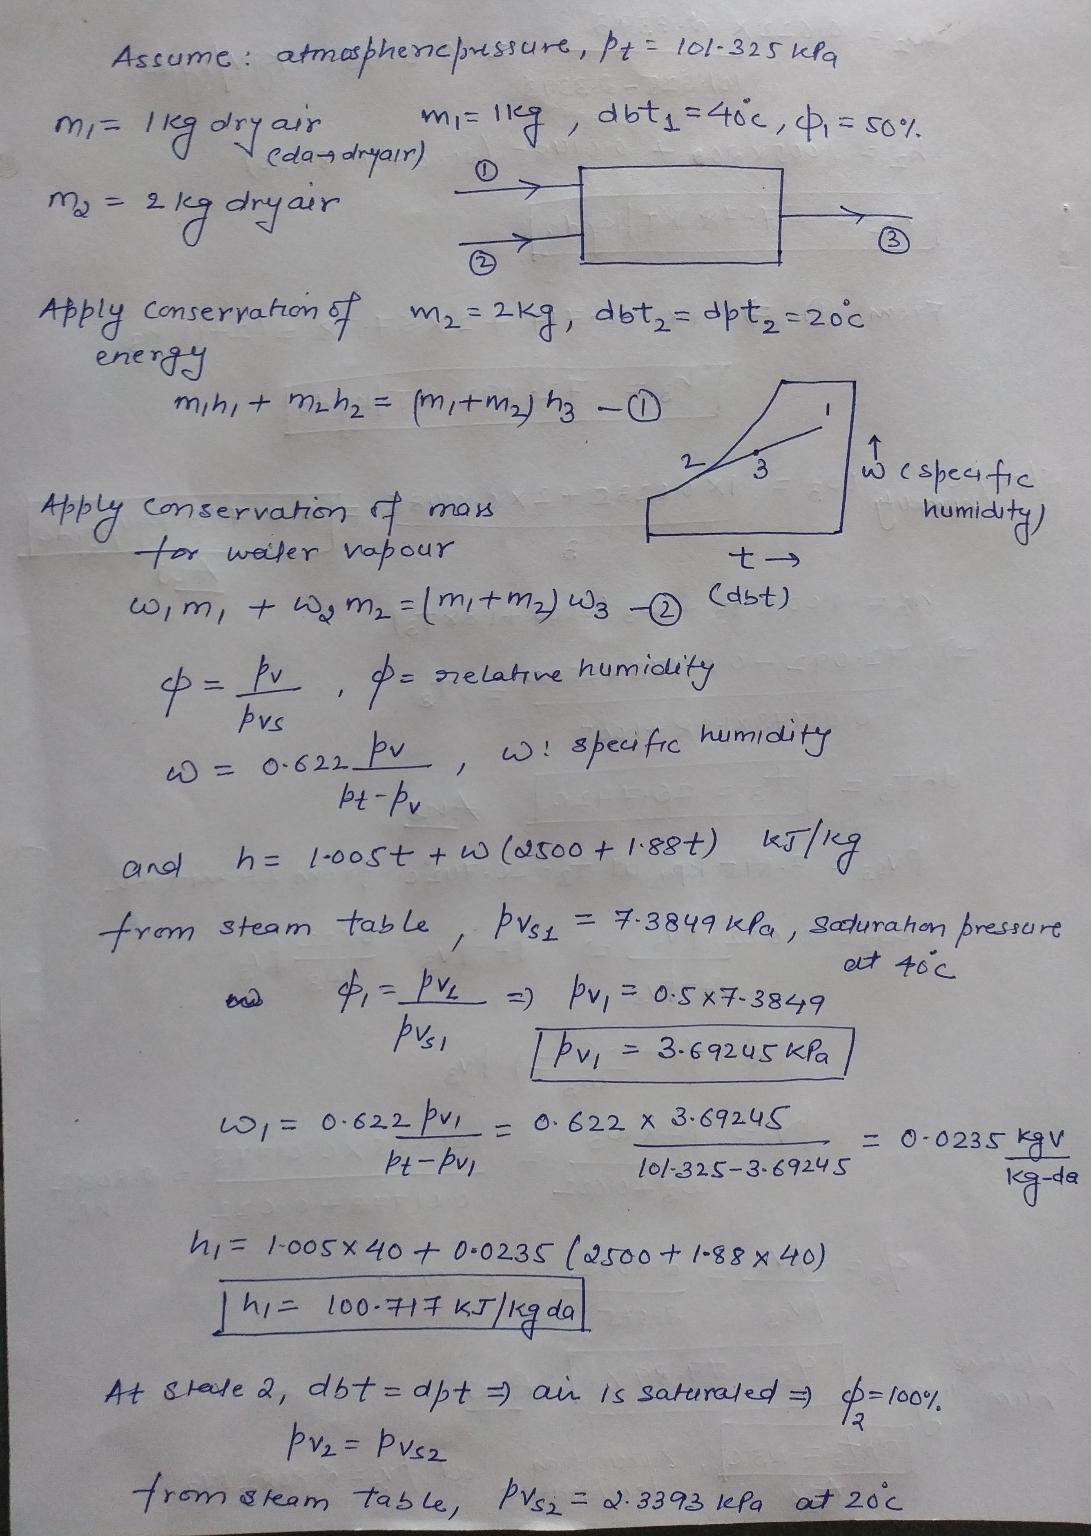 Assume : atmospheric pressure, pt = 101.325 kPa
m1 = 1 kg dry air
(da → dry air)
m1 = 1 kg , dbt1 = 40°C, ϕ1 = 50%
①
m2 = 2 kg dry air
③
②
m2 = 2 kg, dbt2 = dpt2 = 20°C
Apply conservation of
energy
m1h1 + m2h2 = (m1+m2) h3 - ①
1
2
3
↑
ω (specific
humidity)
t →
(dbt)
Apply conservation of mass
for water vapour
ω1 m1 + ω2 m2 = (m1+m2) ω3 - ②
ϕ = pv/pvs , ϕ = relative humidity
ω = 0.622 pv/(pt - pv) , ω: specific humidity
and h = 1.005t + ω (2500 + 1.88t) kJ/kg
from steam table , pvs1 = 7.3849 kPa, saturation pressure
at 40°C
ϕ1 = pv1/pvs1 ⇒ pv1 = 0.5 x 7.3849
pv1 = 3.69245 kPa
ω1 = 0.622 pv1/(pt - pv1) = 0.622 x 3.69245/(101.325 - 3.69245) = 0.0235 kgv/kg-da
h1 = 1.005 x 40 + 0.0235 (2500 + 1.88 x 40)
h1 = 100.717 kJ/kg da
At state 2, dbt = dpt ⇒ air is saturated ⇒ ϕ2 = 100%
pv2 = pvs2
from steam table, pvs2 = 2.3393 kPa at 20°C